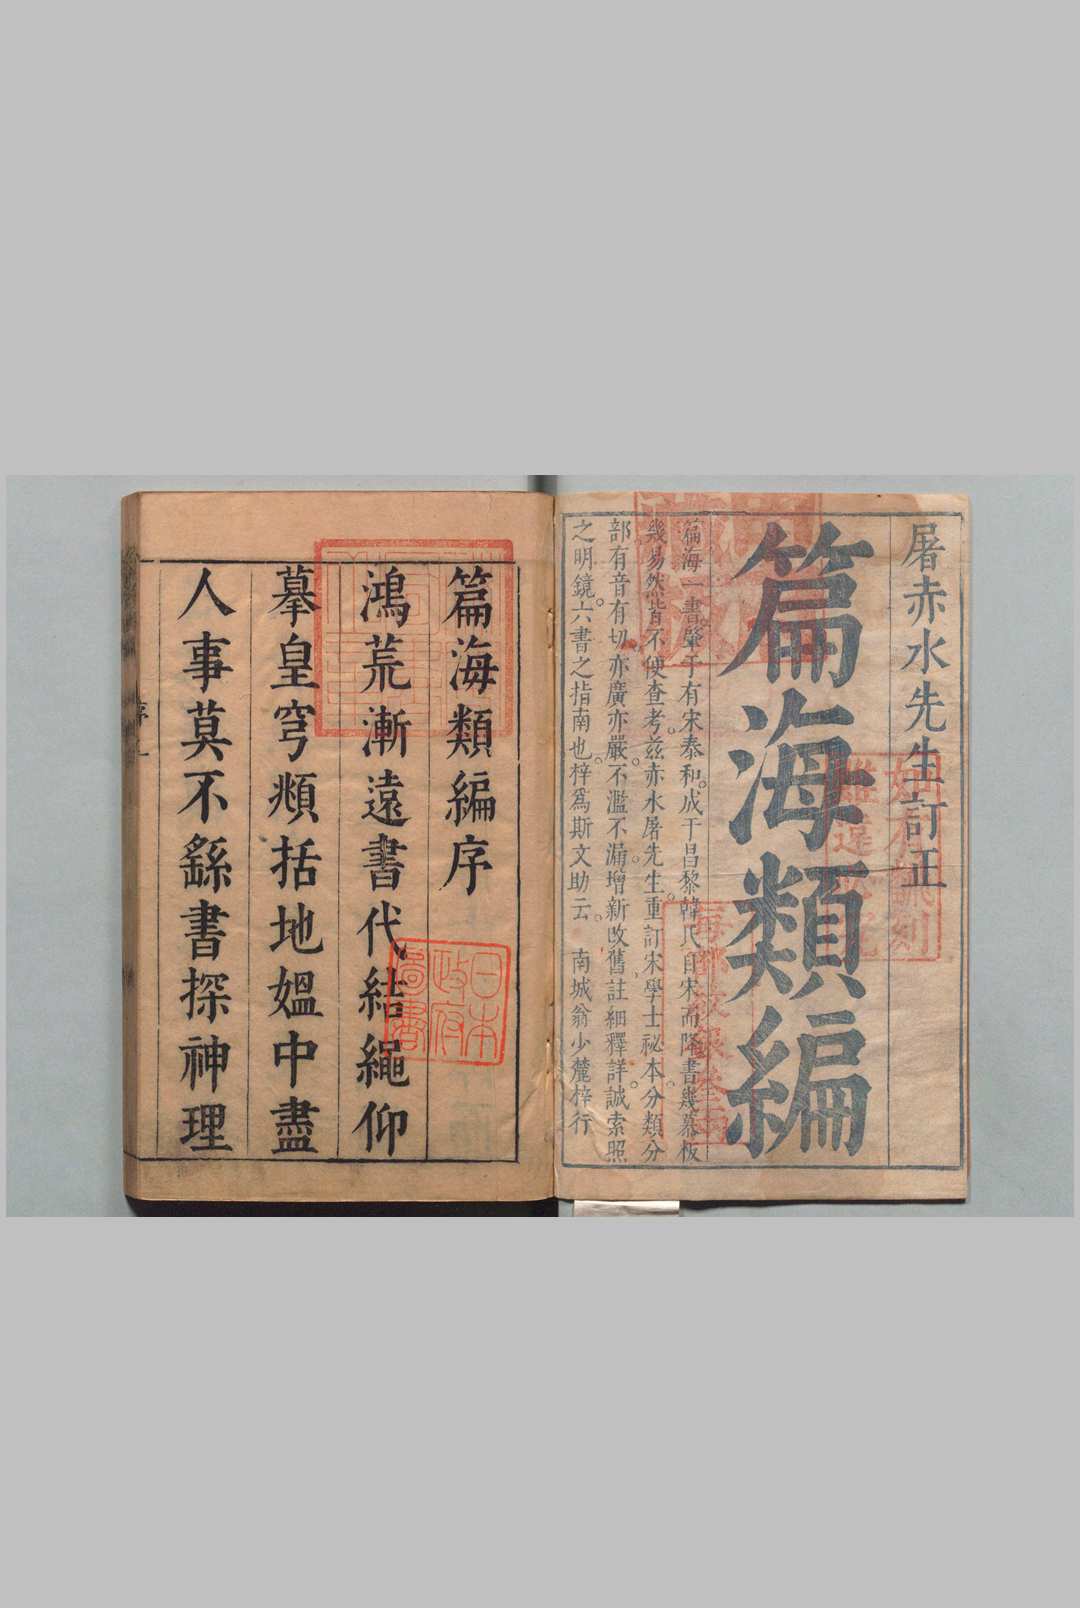 屠赤水先生訂正
篇海類編
篇海一書肇于有宋泰和。成于昌黎韓氏自宋而降書幾幕板
幾易然皆不便查考。茲赤水屠先生。重訂宋學士祕本。分類分
部有音有切亦廣亦嚴。不濫不漏。增新改舊註細釋詳誠索照
之明鏡。六書之指南也。梓爲斯文助云。 南城翁少麓梓行
篇海類編序
鴻荒漸遠書代結繩仰
摹皇穹頫括地媼中盡
人事莫不繇書探神理
序
日本
政府
圖書